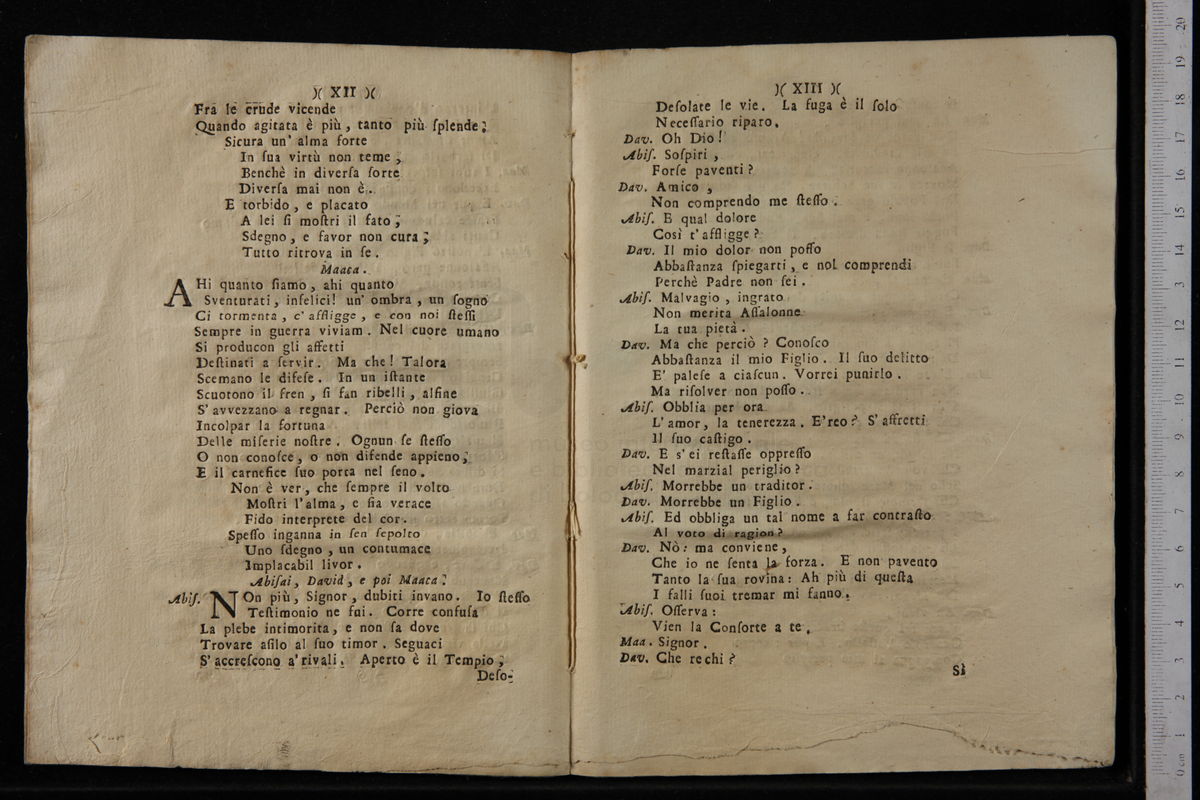 )( XII )(
Fra le crude vicende
Quando agitata è più, tanto più ſplende;
Sicura un' alma forte
In ſua virtù non teme,
Benchè in diverſa ſorte
Diverſa mai non è.
E torbido, e placato
A lei ſi moſtri il fato;
Sdegno, e favor non cura;
Tutto ritrova in ſe.
Maaca.
AHi quanto ſiamo, ahi quanto
Sventurati, infelici! un' ombra, un ſogno
Ci tormenta, c' affligge, e con noi ſteſſi
Sempre in guerra viviam. Nel cuore umano
Si producon gli affetti
Deſtinati a ſervir. Ma che! Talora
Scemano le difeſe. In un iſtante
Scuotono il fren, ſi fan ribelli, alfine
S' avvezzano a regnar. Perciò non giova
Incolpar la fortuna
Delle miſerie noſtre. Ognun ſe ſteſſo
O non conoſce, o non difende appieno;
E il carnefice ſuo porta nel ſeno.
Non è ver, che ſempre il volto
Moſtri l'alma, e ſia verace
Fido interprete del cor.
Speſſo inganna in ſen ſepolto
Uno ſdegno, un contumace
Implacabil livor.
Abiſai, David, e poi Maaca.
Abiſ. NOn più, Signor, dubiti invano. Io ſteſſo
Teſtimonio ne fui. Corre confuſa
La plebe intimorita, e non ſa dove
Trovare aſilo al ſuo timor. Seguaci
S' accreſcono a' rivali. Aperto è il Tempio;
Deſo-
)( XIII )(
Deſolate le vie. La fuga è il ſolo
Neceſſario riparo.
Dav. Oh Dio!
Abiſ. Soſpiri,
Forſe paventi?
Dav. Amico,
Non comprendo me ſteſſo.
Abiſ. E qual dolore
Così t' affligge?
Dav. Il mio dolor non poſſo
Abbaſtanza ſpiegarti, e nol comprendi
Perchè Padre non ſei.
Abiſ. Malvagio, ingrato
Non merita Aſſalonne
La tua pietà.
Dav. Ma che perciò? Conoſco
Abbaſtanza il mio Figlio. Il ſuo delitto
E' paleſe a ciaſcun. Vorrei punirlo.
Ma riſolver non poſſo.
Abiſ. Obblia per ora
L' amor, la tenerezza. E'reo? S' affretti
Il ſuo caſtigo.
Dav. E s' ei reſtaſſe oppreſſo
Nel marzial periglio?
Abiſ. Morrebbe un traditor.
Dav. Morrebbe un Figlio.
Abiſ. Ed obbliga un tal nome a far contraſto
Al voto di ragion?
Dav. Nò: ma conviene,
Che io ne ſenta la forza. E non pavento
Tanto la ſua rovina: Ah più di queſta
I falli ſuoi tremar mi fanno.
Abiſ. Oſſerva:
Vien la Conſorte a te.
Maa. Signor.
Dav. Che rechi?
Sì